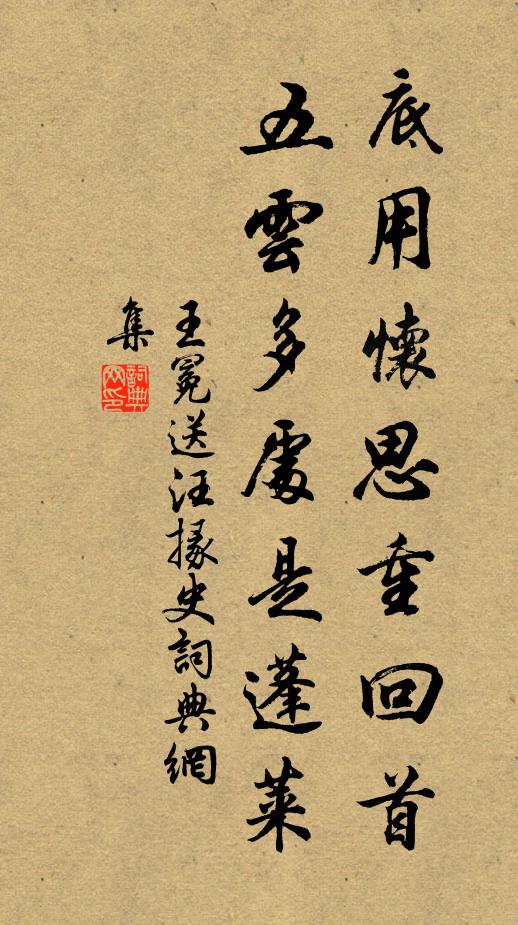 底用懷思重回首
五雲多處是蓬萊
王冕送汪掾史詞典網
集
詞典
網印